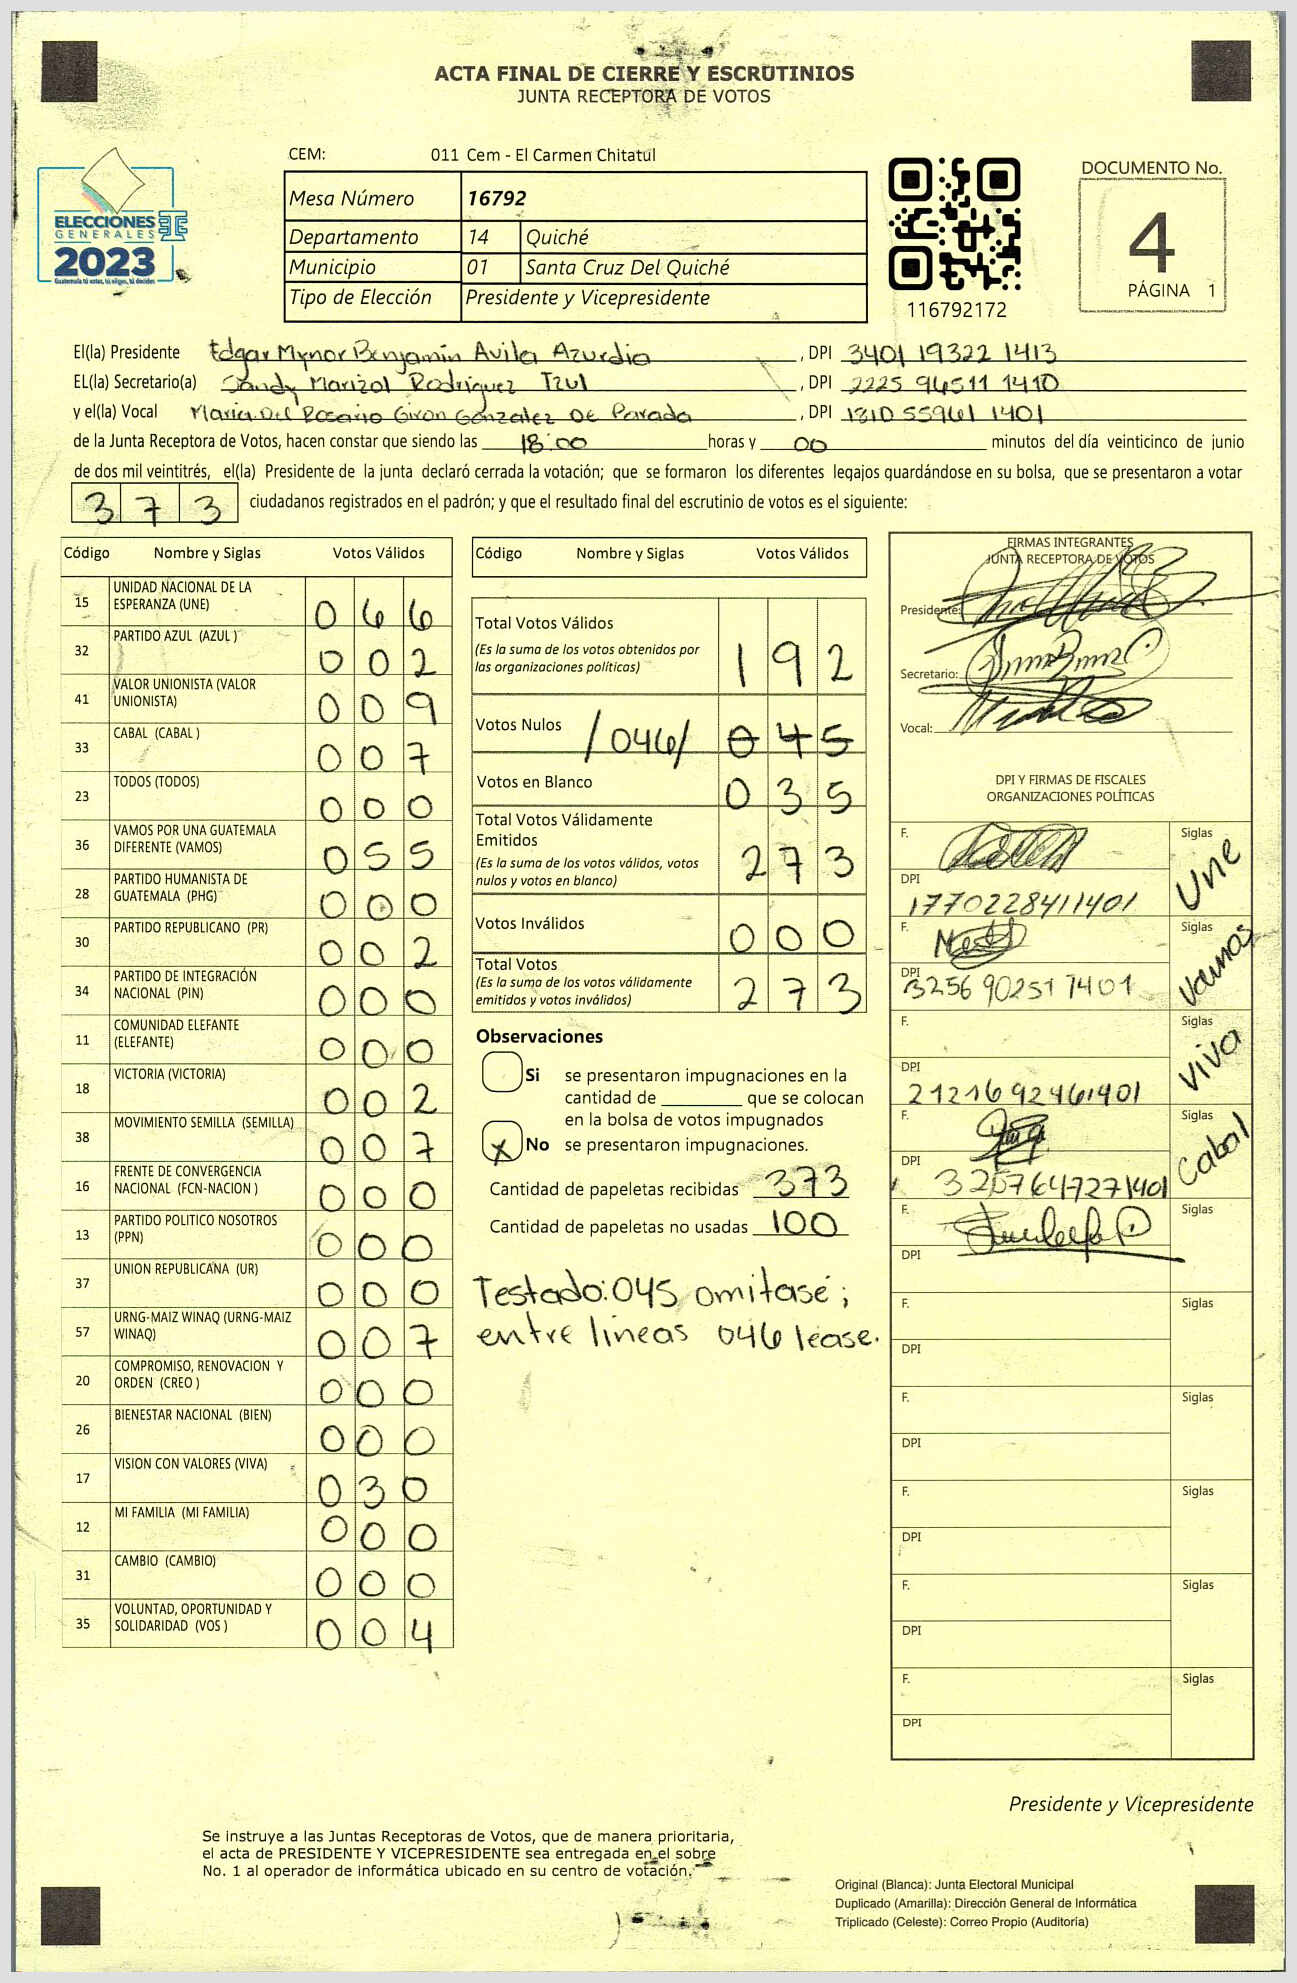 ACTA FINAL DE CIERRE Y ESCRUTINIOS
JUNTA RECEPTORA DE VOTOS
CEM: 011 Cem - El Carmen Chitatul
ELECCIONES
GENERALES
2023
Guatemala tú votas, tú eliges, tú decides
Mesa Número 16792
Departamento 14 Quiché
Municipio 01 Santa Cruz Del Quiché
Tipo de Elección Presidente y Vicepresidente
116792172
DOCUMENTO No.
4
PÁGINA 1
El(la) Presidente Edgar Mynor Benjamín Avila Azurdia, DPI 3401 19322 1413
EL(la) Secretario(a) Sandy Marizol Rodríguez Tzul, DPI 2225 94511 1410
y el(la) Vocal Maria Del Rosario Giron Gonzalez De Parada, DPI 1810 55961 1401
de la Junta Receptora de Votos, hacen constar que siendo las 18:00 horas y 00 minutos del día veinticinco de junio
de dos mil veintitrés, el(la) Presidente de la junta declaró cerrada la votación; que se formaron los diferentes legajos guardándose en su bolsa, que se presentaron a votar
373 ciudadanos registrados en el padrón; y que el resultado final del escrutinio de votos es el siguiente:
Código Nombre y Siglas Votos Válidos
15 UNIDAD NACIONAL DE LA ESPERANZA (UNE) 066
32 PARTIDO AZUL (AZUL ) 002
41 VALOR UNIONISTA (VALOR UNIONISTA) 009
33 CABAL (CABAL ) 007
23 TODOS (TODOS) 000
36 VAMOS POR UNA GUATEMALA DIFERENTE (VAMOS) 055
28 PARTIDO HUMANISTA DE GUATEMALA (PHG) 000
30 PARTIDO REPUBLICANO (PR) 002
34 PARTIDO DE INTEGRACIÓN NACIONAL (PIN) 000
11 COMUNIDAD ELEFANTE (ELEFANTE) 000
18 VICTORIA (VICTORIA) 002
38 MOVIMIENTO SEMILLA (SEMILLA) 007
16 FRENTE DE CONVERGENCIA NACIONAL (FCN-NACION ) 000
13 PARTIDO POLITICO NOSOTROS (PPN) 000
37 UNION REPUBLICANA (UR) 000
57 URNG-MAIZ WINAQ (URNG-MAIZ WINAQ) 007
20 COMPROMISO, RENOVACION Y ORDEN (CREO ) 000
26 BIENESTAR NACIONAL (BIEN) 000
17 VISION CON VALORES (VIVA) 030
12 MI FAMILIA (MI FAMILIA) 000
31 CAMBIO (CAMBIO) 000
35 VOLUNTAD, OPORTUNIDAD Y SOLIDARIDAD (VOS ) 004
Código Nombre y Siglas Votos Válidos
Total Votos Válidos 192
(Es la suma de los votos obtenidos por
las organizaciones políticas)
Votos Nulos /046/ 045
Votos en Blanco 035
Total Votos Válidamente
Emitidos 273
(Es la suma de los votos válidos, votos
nulos y votos en blanco)
Votos Inválidos 000
Total Votos 273
(Es la suma de los votos válidamente
emitidos y votos inválidos)
Observaciones
Si se presentaron impugnaciones en la
cantidad de ________ que se colocan
en la bolsa de votos impugnados
X No se presentaron impugnaciones.
Cantidad de papeletas recibidas 373
Cantidad de papeletas no usadas 100
Testado: 045 omitasé;
entre líneas 046 lease.
FIRMAS INTEGRANTES
JUNTA RECEPTORA DE VOTOS
Presidente:
Secretario:
Vocal:
DPI Y FIRMAS DE FISCALES
ORGANIZACIONES POLÍTICAS
F. Siglas Une
DPI 1770228411401
F. Siglas Vamos
DPI 3256 90251 1401
F. Siglas Viva
DPI 2121692461401
F. Siglas Cabal
DPI 3207647271401
F. Siglas
DPI
F. Siglas
DPI
F. Siglas
DPI
F. Siglas
DPI
F. Siglas
DPI
F. Siglas
DPI
Presidente y Vicepresidente
Se instruye a las Juntas Receptoras de Votos, que de manera prioritaria,
el acta de PRESIDENTE Y VICEPRESIDENTE sea entregada en el sobre
No. 1 al operador de informática ubicado en su centro de votación.
Original (Blanca): Junta Electoral Municipal
Duplicado (Amarilla): Dirección General de Informática
Triplicado (Celeste): Correo Propio (Auditoría)